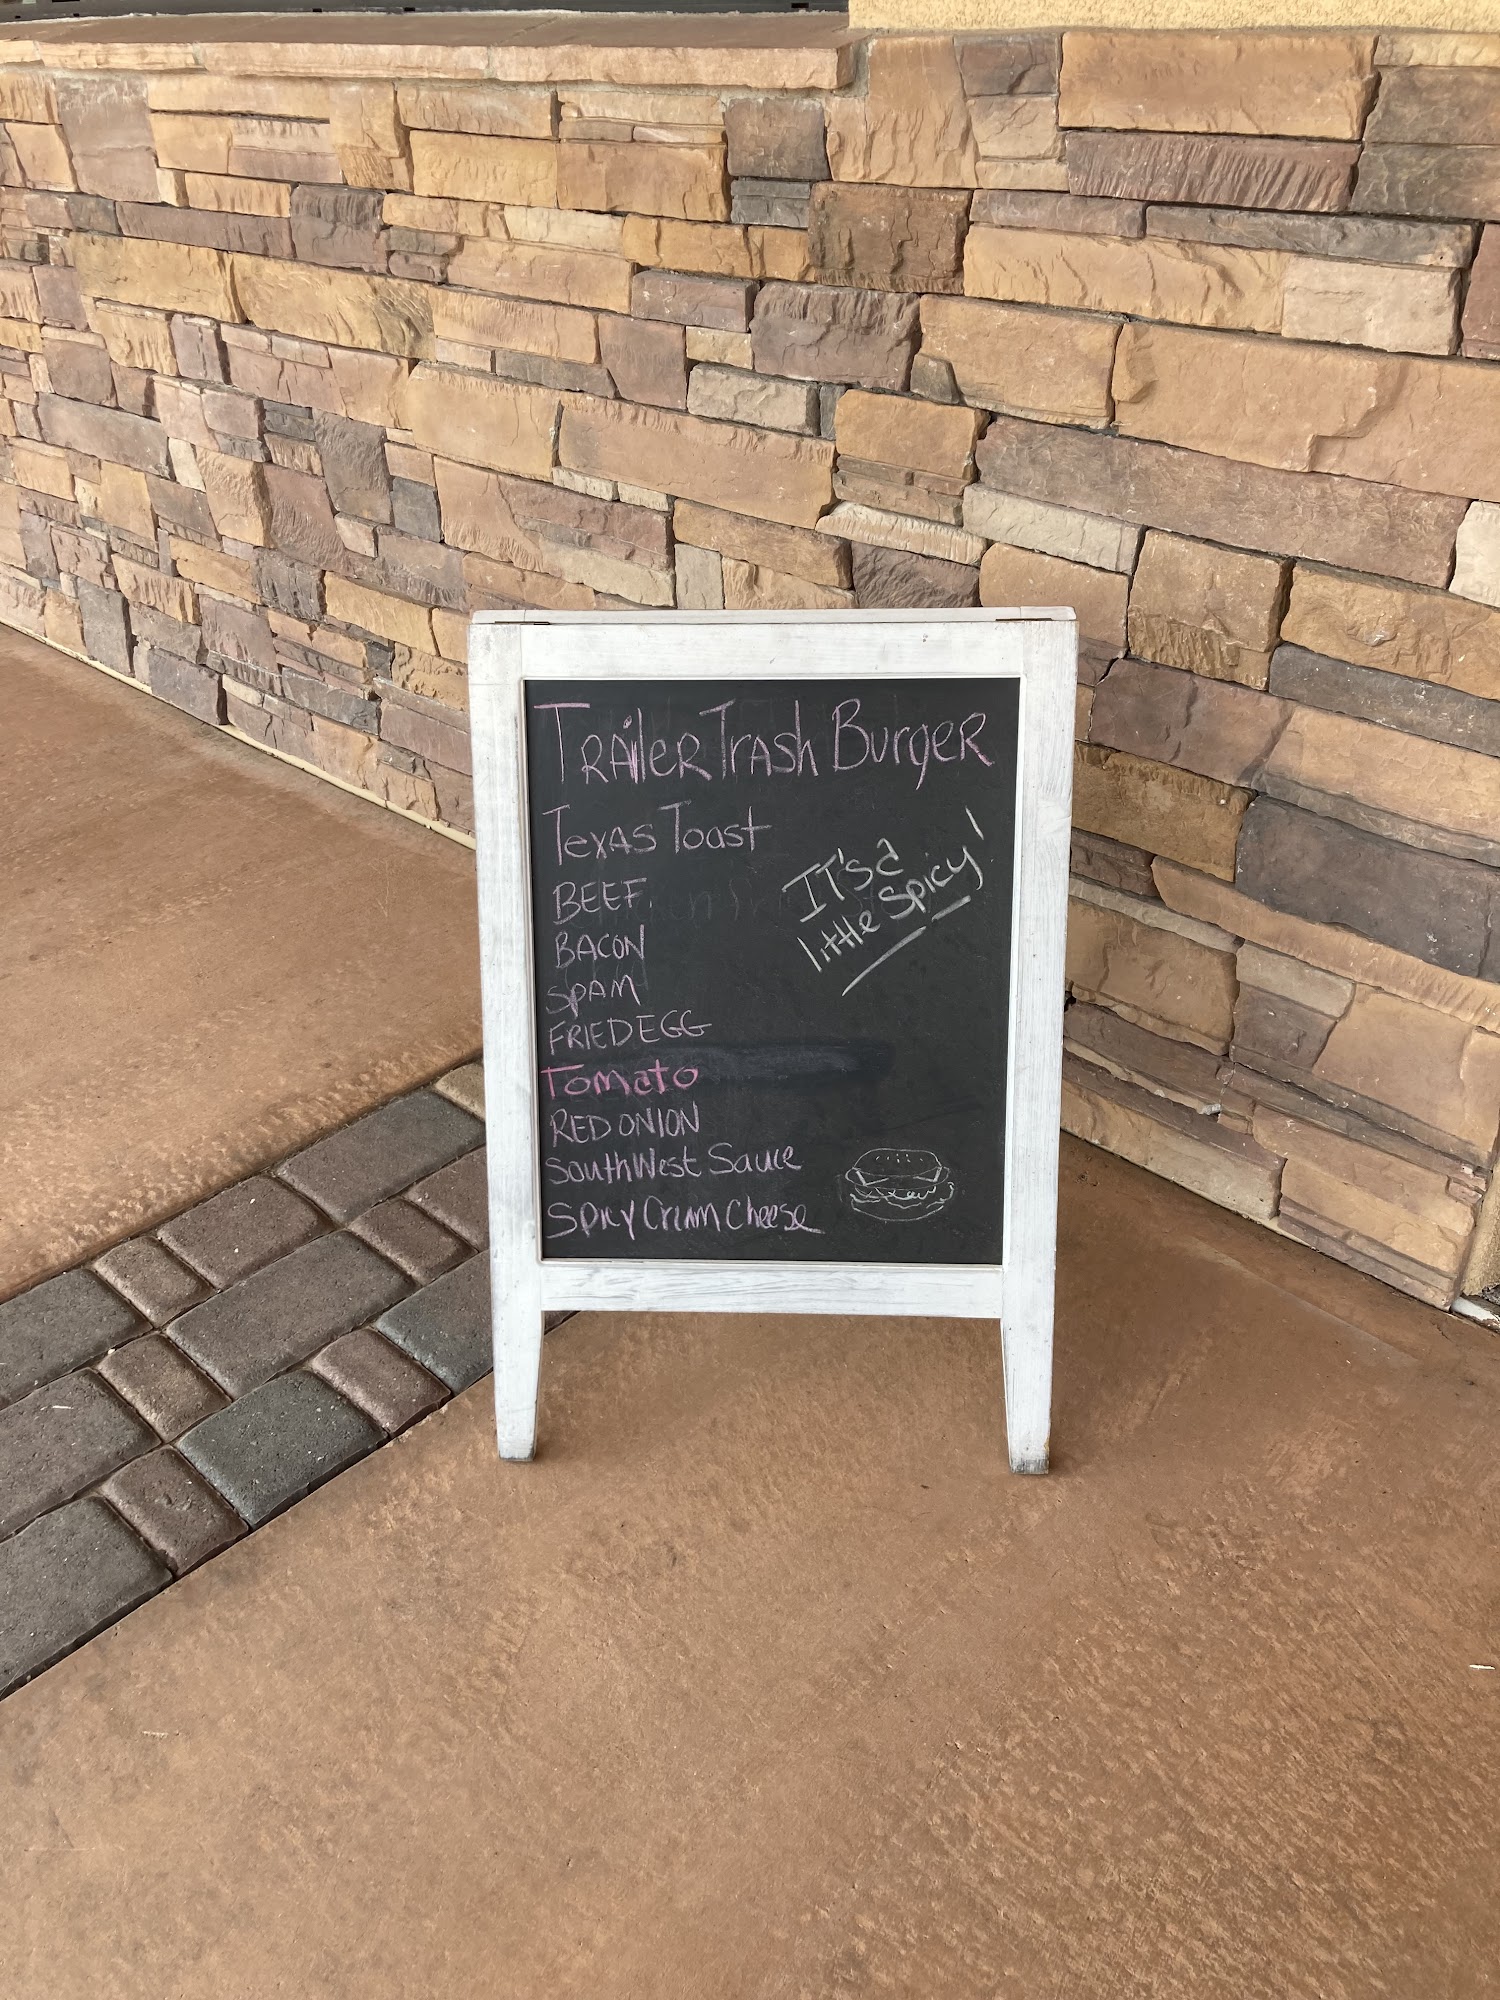 TRAilER TRAsh BurgER
TexAs Toast
BEEF
BACON
SPAM
FRIED EGG
Tomato
RED ONION
SouthWest Sauce
SPicy Cream Cheese
IT'S a
little Spicy!